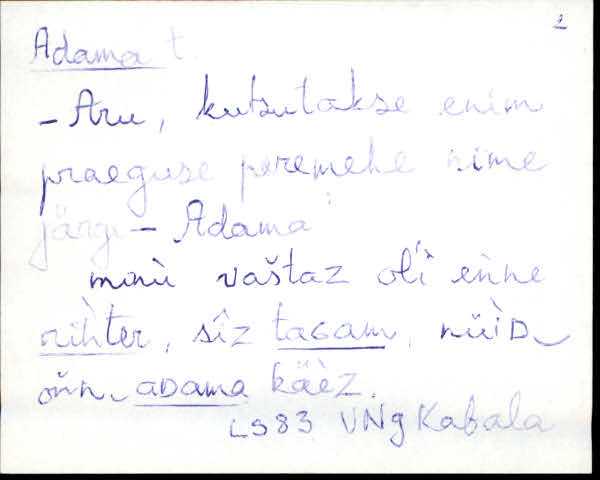 1
Adama t.
- Aru, kutsutakse enim
praeguse peremehe nime
järgi - Adama:
monù vaštaz oľì enne
rihter, sîz taGam, nüìD
oňn aDama käèz.
LS 83 VNg Kabala